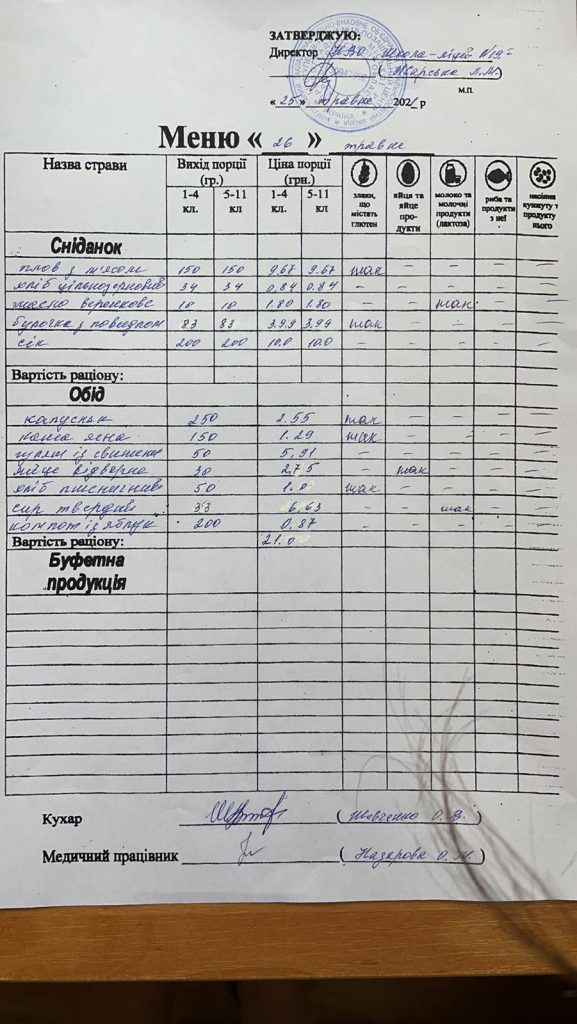 ЗАТВЕРДЖУЮ:
Директор НВО Школа-ліцей №19
( Яварська Л.М. )
м.п.
« 25 » травня 2021 р
Меню « 26 » травня
Назва страви Вихід порції (гр.) Ціна порції (грн.) злаки, що містять глютен яйця та яйце продукти молоко та молочні продукти (лактоза) риба та продукти з неї насіння кунжуту т продукту нього
1-4 кл. 5-11 кл 1-4 кл. 5-11 кл
Сніданок
плов з м'ясом 150 150 9.67 9.67 так – – – –
хліб цільнозернович 34 34 0.84 0.84 – – – – –
масло вершкове 10 10 1.80 1.80 – – так – –
булочка з повидлом 83 83 3.99 3.99 так – – – –
сік 200 200 10.0 10.0 – – – – –
Вартість раціону:
Обід
капусняк 250 2.55 так – – – –
каша ячна 150 1.29 так – – – –
гуляш із свинини 50 5,91 – – – – –
яйце відварне 30 2,75 – так – – –
хліб пшеничний 50 1.0 так – – – –
сир твердий 33 6,63 – – так – –
компот із яблук 200 0,87 – – – – –
Вартість раціону: 21.0
Буфетна продукція
Кухар ( Шевченко О.В. )
Медичний працівник ( Назарова О.М. )